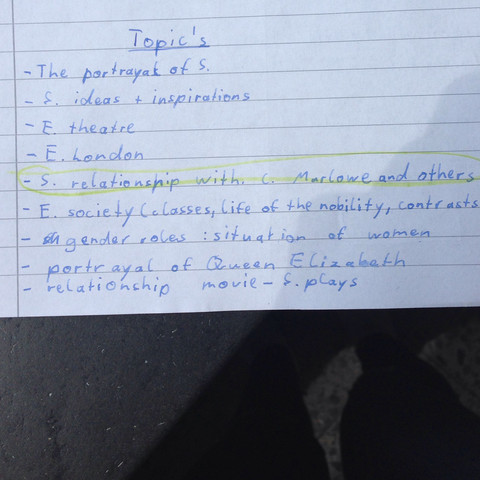 Topic's
- The portrayal of S.
- S. ideas + inspirations
- E. theatre
- E. London
- S. relationship with. C. Marlowe and others
- E. society (classes, life of the nobility, contrasts
- gender roles : situation of women
- portrayal of Queen Elizabeth
- relationship movie - S. plays